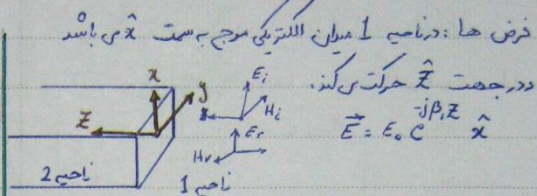 فرض ها : در ناحیه 1 میدان الکتریکی موج به سمت x̂ می باشد
و در جهت ẑ حرکت می کند.
E⃗ = E₀ e^{-jβ₁z} x̂
x
y
z
Ei
Hi
Er
Hr
ناحیه 2
ناحیه 1